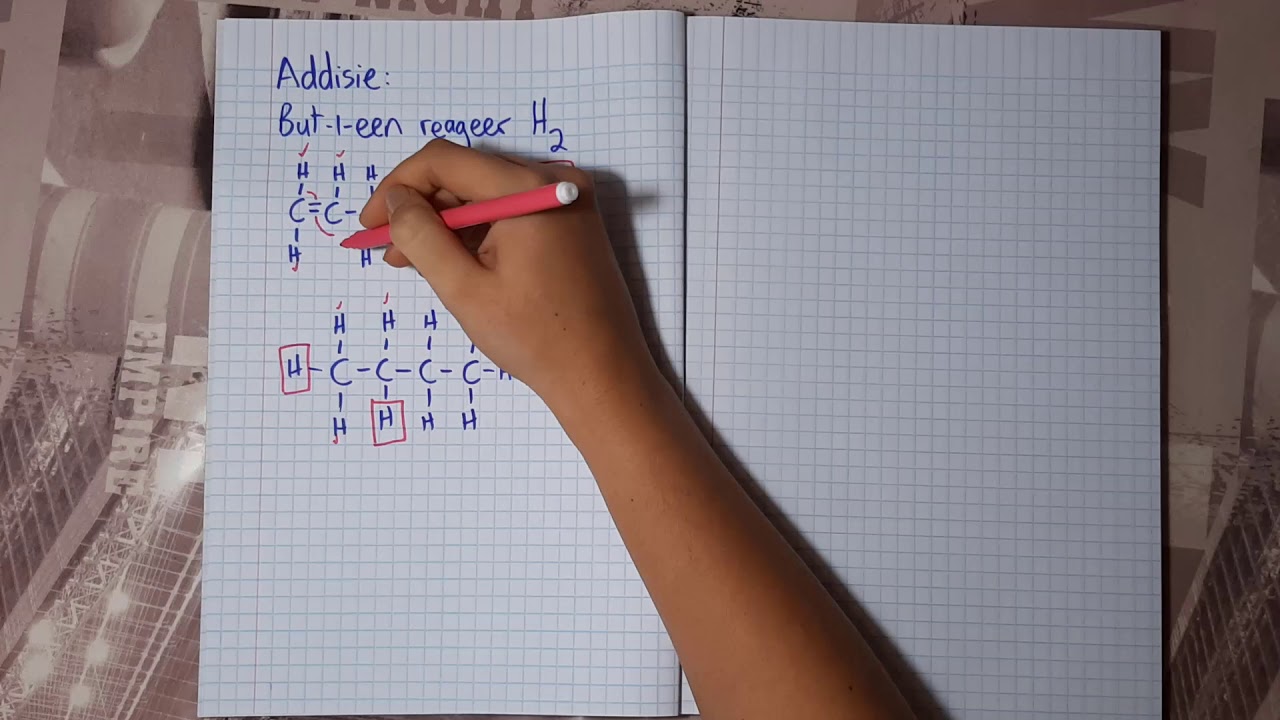 Addisie:
But-1-een reageer H2
H H H
C=C-
H H
H H H
H-C-C-C-C-H
H H H H
EMPIRE